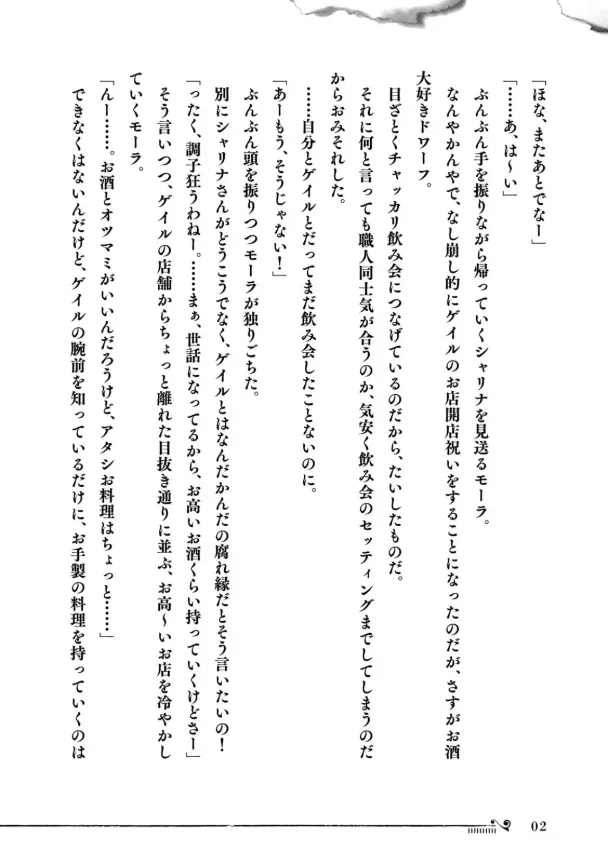 「ほな、またあとでなー」
「……あ、は～い」
ぶんぶん手を振りながら帰っていくシャリナを見送るモーラ。
なんやかんやで、なし崩し的にゲイルのお店開店祝いをすることになったのだが、さすがお酒
大好きドワーフ。
目ざとくチャッカリ飲み会につなげているのだから、たいしたものだ。
それに何と言っても職人同士気が合うのか、気安く飲み会のセッティングまでしてしまうのだ
からおみそれした。
……自分とゲイルとだってまだ飲み会したことないのに。
「あーもう、そうじゃない！」
ぶんぶん頭を振りつつモーラが独りごちた。
別にシャリナさんがどうこうでなく、ゲイルとはなんだかんだの腐れ縁だとそう言いたいの！
「ったく、調子狂うわねー。……まぁ、世話になってるから、お高いお酒くらい持っていくけどさー」
そう言いつつ、ゲイルの店舗からちょっと離れた目抜き通りに並ぶ、お高～いお店を冷やかし
ていくモーラ。
「んー……。お酒とオツマミがいいんだろうけど、アタシお料理はちょっと……」
できなくはないんだけど、ゲイルの腕前を知っているだけに、お手製の料理を持っていくのは
02